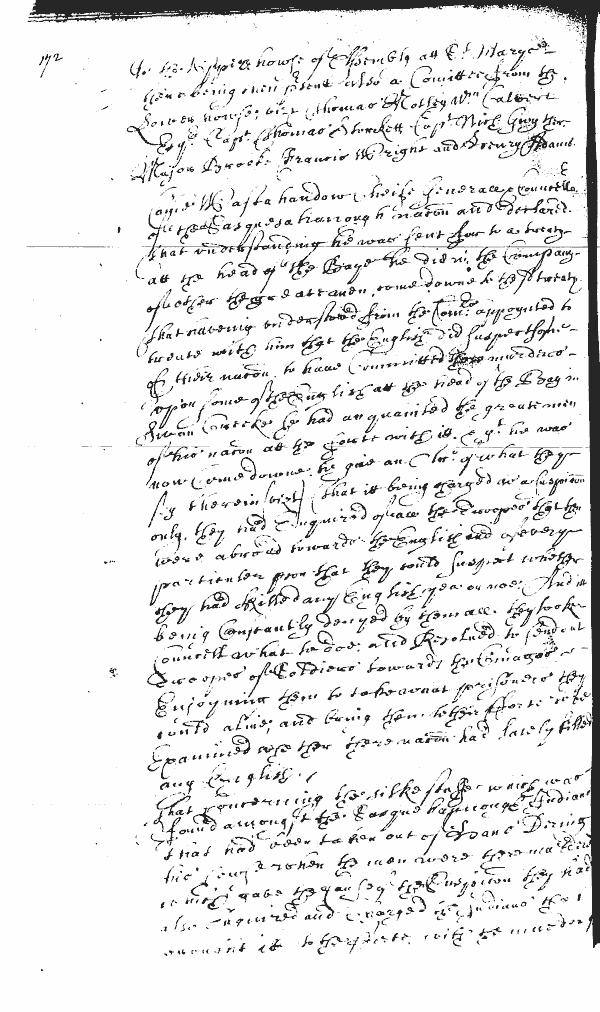 172
To the Upper howse of Assembly att St Maryes
there being then psent also a Comittee from the
Lower howse, vizt Thomas Notley Wm Calvert
Esqr Capt Thomas Stockett Capt Nich Gwyther
Major Brooke Francis Wright and Henry Adams
Came Wastahandow Cheife Generall & Councello
of the Sasquesahannough nacon and declared
that understanding he was sent for to a treaty
att the head of the Baye he did in the Company
of other the greate men, come downe to the sd treaty
that haveing understood from the Comrs appoynted to
treate with him that the English did suspect some
of their nacon, to have Committed murders
upon some of the English att the head of the Bay in
he had acquainted the greate men
of his nacon att the forte with it, & yt he was
now Come downe to give an of what they
say therein vizt that it being charged as a suspicon
only, they had Enquired of all the troopes that then
were abroad towards the English and of every
particuler pson that they could suspect whether
they had killed any English yea or noe, And it
being Constantly denyed by them all, they tooke
Councell what to doe, and Resolved to send out
troopes of Soldiers towards the
Enjoyning them to take what prisoners they
could alive, and bring them to their fforte to be
Examined whether there nacon had lately killed
any English.
That concerning the silke stuffe which was
found amongst the Sasquehannough Indians
that had been taken out of
his when the men were there murdered
which gave the the Suspicon they had
also Enquired and Charged the Indians that
brought itt to the forte with the murder